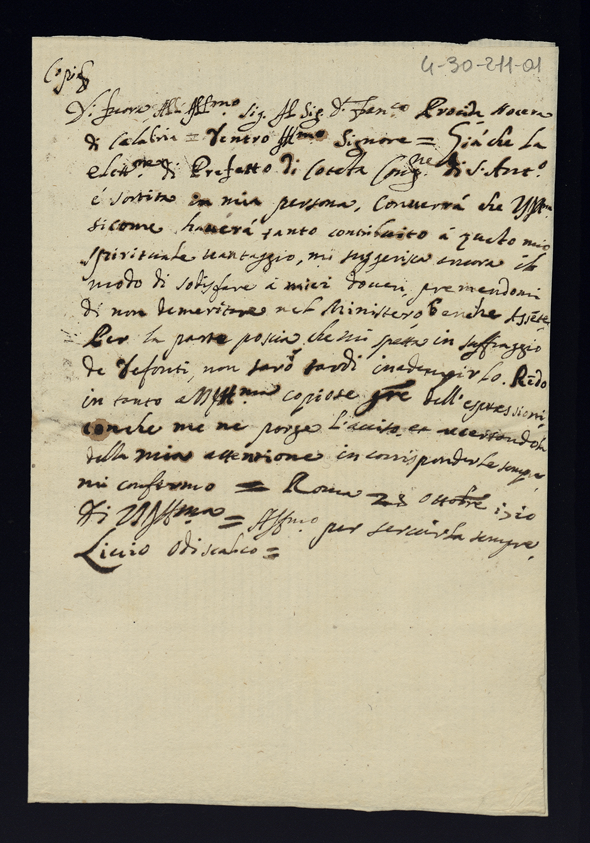 4-30-211-01
Copia
Di fuora All Illmo Sig. Il Sig. Dn Fran.co Procida Nocera
di Calabria = Dentro Illmo Signore = Già che la
Elett.ne di Prefetto di Cotesta Cong.ne di S. Ant.o
è sortita in mia persona, Converrà che VS Illma
sicome haverà tanto contribuito à questo mio
spirituale vantaggio, mi suggerisca ancora il
modo di sodisfare à miei doveri, premendomi
di non demeritare nel Ministero
Per la parte poscia che mi spetta in suffraggio
de Defonti, non sarò tardi inadempirlo. Rēdo
in tanto a VS Illma copiose gre dell'espressioni
conche me ne porge l'aviso, et accertandola
della mia attentione in corrisponderle sempre
mi confermo = Roma 28 Ottobre 1710
Di VS Illma = Affmo per servirla sempre
Livio Odiscalco =